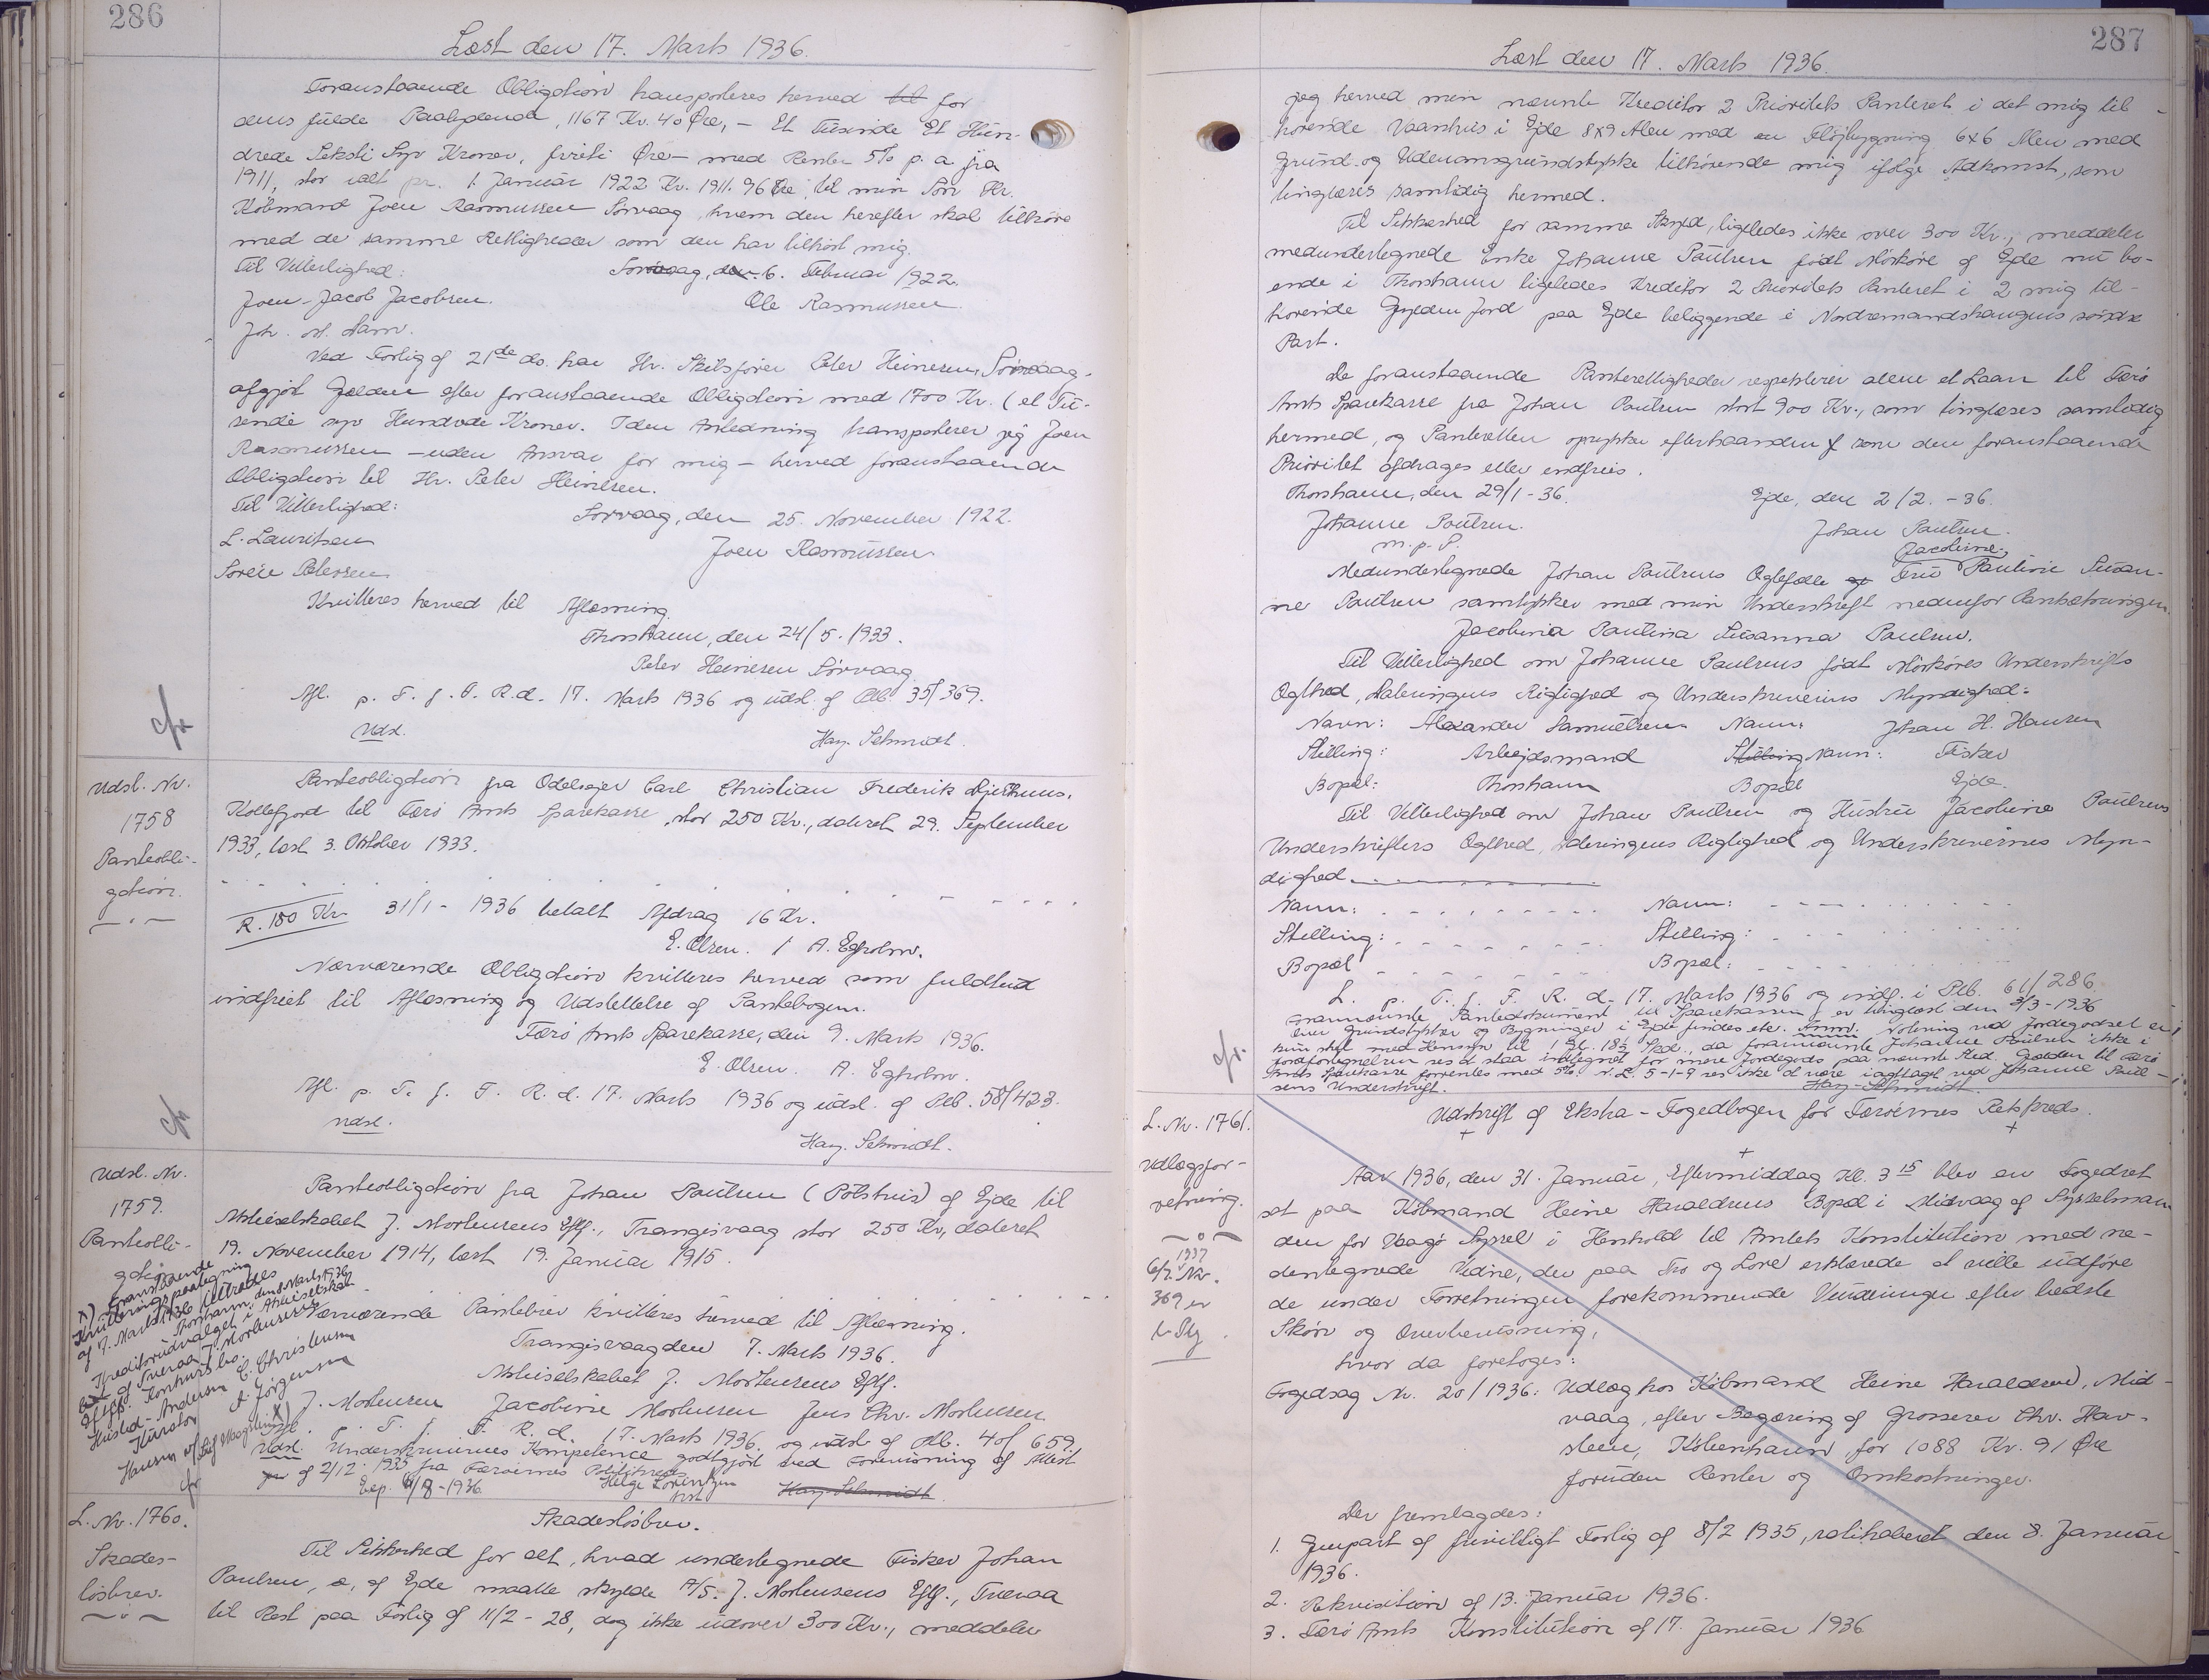 286
Læst den 17. Marts 1936.
Foranstaaende Obligation transporteres herved til for
dens fulde Paalydende, 1167 Kr. 40 Øre, - Et Tusinde Et Hun-
drede Seksti Syv Kroner, firti Øre - med Renter 5% p. a. fra
1911, stor ialt pr. 1. Januar 1922 Kr. 1911.96 Øre til min Søn Hr.
Købmand Joen Rasmussen Sörvaag, hvem den herefter skal tilhöre
med de samme Rettigheder som den har tilhört mig.
Til Vitterlighed: Sörvaag, den 6. Februar 1922.
Joen-Jacob Jacobsen. Ole Rasmussen
Joh. M. Dam.
Ved Forlig af 21de ds. har Hr. Skibsförer Peter Heinesen, Sörvaag,
afgjort Gælden efter foranstaaende Obligation med 1700 Kr. (et Tu-
sende syv Hundrede Kroner. I den Anledning transporterer jeg Joen
Rasmussen - uden Ansvar for mig - herved foranstaaende
Obligation til Hr. Peter Heinesen.
Til Vitterlighed: Sörvaag, den 25. November 1922.
L. Lauritsen Joen Rasmussen
Sörine Petersen
Kvitteres herved til Aflæsning.
Thorshavn, den 24/5. 1933.
Peter Heinesen Sörvaag
Afl. p. F. f. F. R. d. 17. Marts 1936 og udsl. af Ptb. 35/369.
Udsl. Hay-Schmidt.
Udsl. Nr.
1758
Panteobli-
gation.
Panteobligation fra Odelsejer Carl Christian Frederik Djurhuus,
Kollefjord til Færø Amts Sparekasse, stor 250 Kr., dateret 29. September
1933, læst 3. Oktober 1933.
R. 180 Kr. 31/1 - 1936 betalt Afdrag 16 Kr.
E. Olsen. / A. Egholm.
Nærværende Obligation kvitteres herved som fuldtud
indfriet til Aflæsning og Udslettelse af Pantebogen.
Færø Amts Sparekasse, den 9. Marts 1936.
E. Olsen. A. Egholm.
Afl. p. F. f. F. R. d. 17. Marts 1936 og udsl. af Ptb. 58/423.
Udsl. Hay-Schmidt.
Udsl. Nr.
1759.
Panteobli-
gation
Panteobligation fra Johan Poulsen (Pólshus) af Ejde til
Aktieselskabet J. Mortensens Eftf., Trangisvaag stor 250 Kr., dateret
19. November 1914, læst 19. Januar 1915.
Nærværende Pantebrev kvitteres herved til Aflæsning.
Trangisvaag den 7. Marts 1936.
Aktieselskabet J. Mortensens Eftf.
J. Mortensen Jacobine Mortensen Jens Chr. Mortensen
Afl. p. F. f. F. R. d. 17. Marts 1936. og udsl. af Ptb. 4 of 659.
Udsl. Underskrivernes Kompetence godtgjort ved Forevisning af Attest
af 2/12 1935 fra Færøernes Politikreds
Exp. 4/8-1936. Helge Lorentzen Hay-Schmidt
x) Foranstaaende
Kvitteringspaategning
af 7. Marts 1936 tiltrædes
Thorshavn, den 8. Marts 1936
Kreditorudvalget i Aktieselskabet
af Tveraa J. Mortensens
Eftf. Konkursbo.
Husted-Andersen C. Christensen
Kurator J. Jörgensen
L. Nr. 1760.
Skades-
løsbrev.
Skadesløsbrev.
Til Sikkerhed for alt, hvad undertegnede Fisker Johan
Poulsen, af Ejde maatte skylde A/S. J. Mortensens Eftf., Tveraa
til Rest paa Forlig af 11/2 - 28, dog ikke udover 300 Kr., meddeler
287
Læst den 17. Marts 1936.
jeg herved min nævnte Kreditor 2 Prioritets Panteret i det mig til-
hörende Vaanhus i Ejde 8x9 Alen med en Flöjbygning 6x6 Alen med
Grund og Udenomsgrundstykke tilhörende mig ifölge Adkomst, som
tinglæses samtidig hermed.
Til Sikkerhed for samme Skyld, ligeledes ikke over 300 Kr., meddeler
medundertegnede Enke Johanne Poulsen födt Mörköre af Ejde nu bo-
ende i Thorshavn ligeledes Kreditor 2 Prioritets Panteret i 2 mig til-
hörende Gylden Jord paa Ejde beliggende i Nordremandshaugens söndre
Part.
De foranstaaende Panterettigheder respekterer alene et Laan til Færö
Amts Sparekasse fra Johan Poulsen stort 900 Kr., som tinglæses samtidig
hermed, og Panteretten oprykker efterhaanden som den foranstaaende
Prioritet afdrages eller indfries.
Thorshavn, den 29/1 - 36. Ejde, den 2/2. - 36.
Johanne Poulsen. Johan Poulsen.
m. p. P.
Medundertegnede Johan Poulsens Ægtefælle Fru Jacobine Pauline Susan-
ne Poulsen samtykker med min Underskrift nedenfor Pantsætningen.
Jacobina Paulina Susanna Poulsen.
Til Vitterlighed om Johanne Poulsens födt Mörköres Underskrifts
Ægthed, Dateringens Rigtighed og Underskriverens Myndighed:
Navn: Alexander Samuelsen Navn: Johan H. Hansen
Stilling: Arbejdsmand Stilling Navn: Fisker
Bopæl: Thorshavn Bopæl Ejde.
Til Vitterlighed om Johan Poulsen og Hustru Jacobine Poulsens
Underskrifters Ægthed, Dateringens Rigtighed og Underskrivernes Myn-
dighed
Navn: Navn:
Stilling: Stilling:
Bopæl Bopæl:
L. p. F. f. F. R. d. 17. Marts 1936 og indf. i Ptb. 61/286
Forannævnte Pantedokument til Sparekassen er tinglæst den 3/3-1936
over Grundstykker og Bygninger i Ejde findes ete. Anm. Notering ved Jordegodset er
kun sket med Hensyn til 1 Gl. 18½ Skd., da forannævnte Johanne Poulsen ikke i
Jordfortegnelsen ses at staa indtegnet for mere Jordegods paa nævnte Sted. Gælden til Færö
Amts Sparekasse forrentes med 5%. D.L. 5-1-7 ses ikke at være iagttaget ved Johanne Poul-
sens Underskrift. Hay-Schmidt.
L. Nr. 1761.
Udlægsfor-
retning.
1937
6/7. Nr.
369 er
Udskrift af Ekstra-Fogedbogen for Færøernes Retskreds.
Aar 1936, den 31. Januar, Eftermiddag Kl. 3 15 blev en Fogedret
sat paa Købmand Heine Haraldsens Bopæl i Midvaag af Sysselman-
den for Vaagø Syssel i Henhold til Amtets Konstitution med ne-
dentegnede Vidne, der paa Tro og Love erklærede at ville udföre
de under Forretningen forekommende Vurderinger efter bedste
Skön og Overbevisning,
hvor da foretoges:
Fogedsag Nr. 20/1936: Udlæg hos Købmand Heine Haraldsen, Mid-
vaag, efter Begæring af Grosserer Chr. Hav-
steen, København for 1088 Kr. 91 Øre
foruden Renter og Omkostninger.
Der fremlagdes:
1. Genpart af frivilligt Forlig af 8/2 1935, ratihaberet den 8. Januar
1936.
2. Rekvisition af 13. Januar 1936.
3. Færø Amts Konstitution af 17. Januar 1936